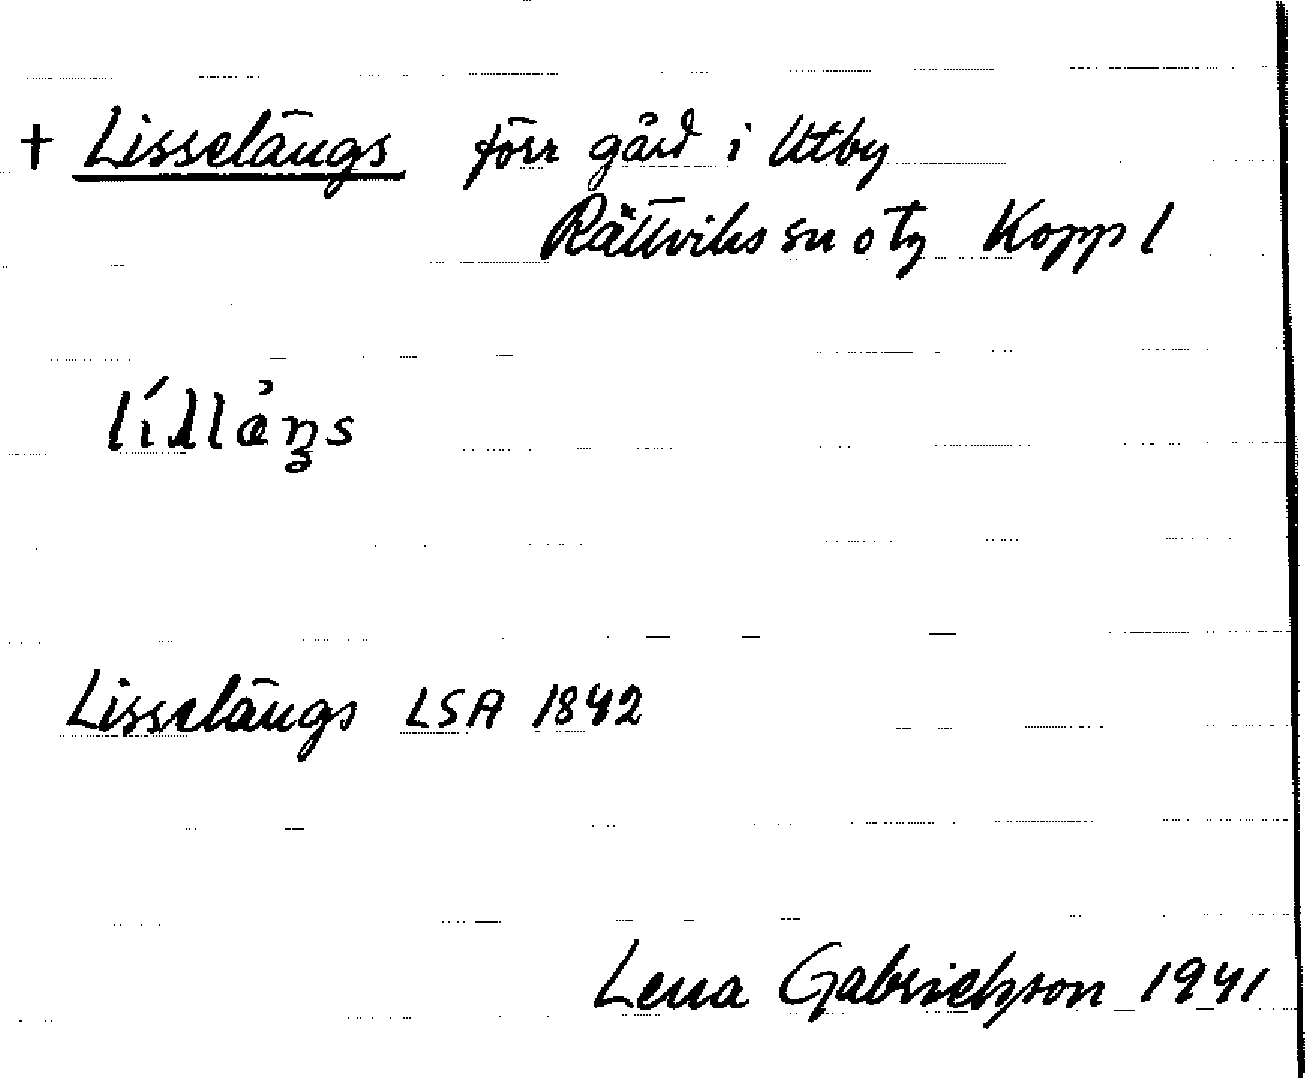 + Lisselängs förr gård i Utby
Rättviks sn o tg Kopp l
Lisselängs LSA 1842
Lena Gabrielsson 1941